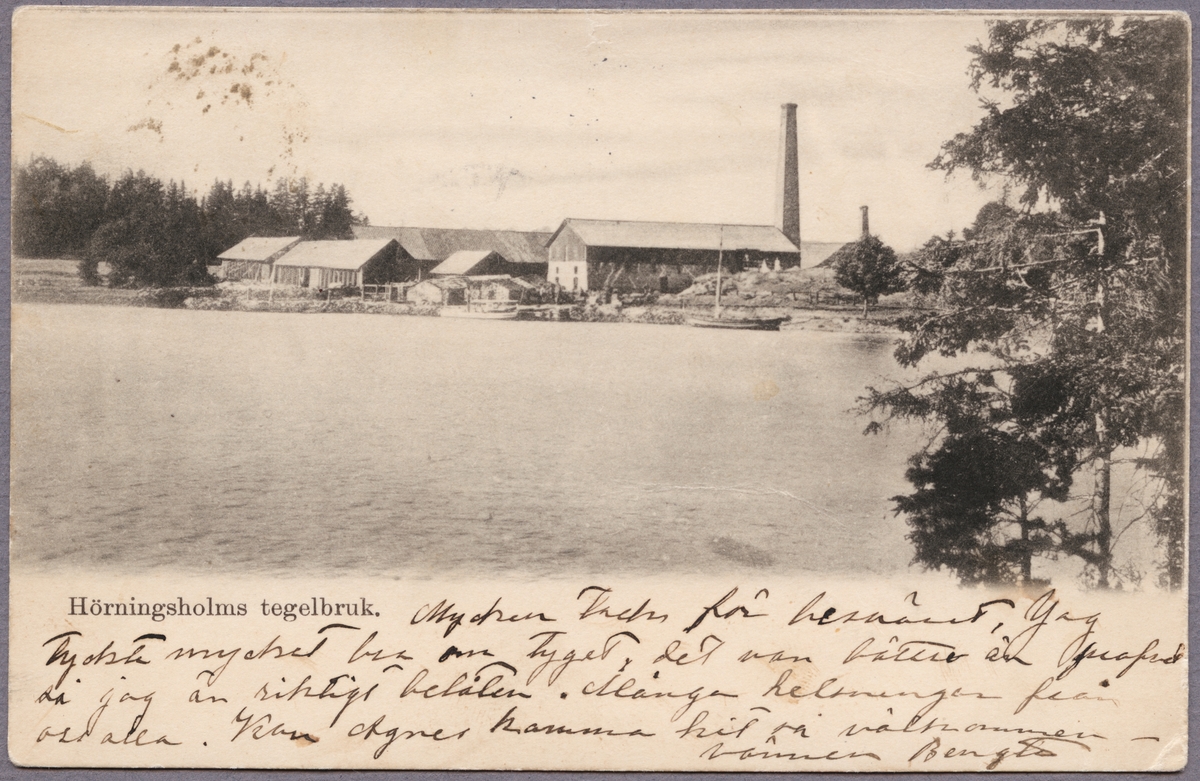 Hörningsholms tegelbruk. Mycken Tack för besväret, Jag
tyckte mycket bra om tyget, det var bättre än profvet
så jag är riktigt belåten. Många helsningar från
oss alla. Kan Agnes komma hit så välkommen –
vännen Bengta